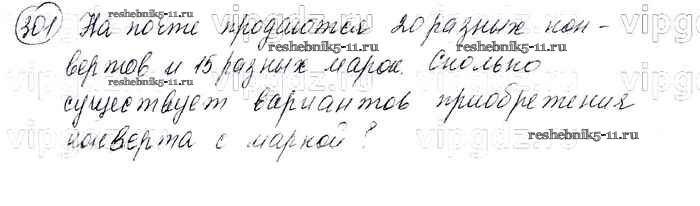 301 На почте продаются 20 разных кон-
вертов и 15 разных марок. Сколько
существует вариантов приобретения
конверта с маркой?
reshebnik5-11.ru
reshebnik5-11.ru
reshebnik5-11.ru
reshebnik5-11.ru
reshebnik5-11.ru